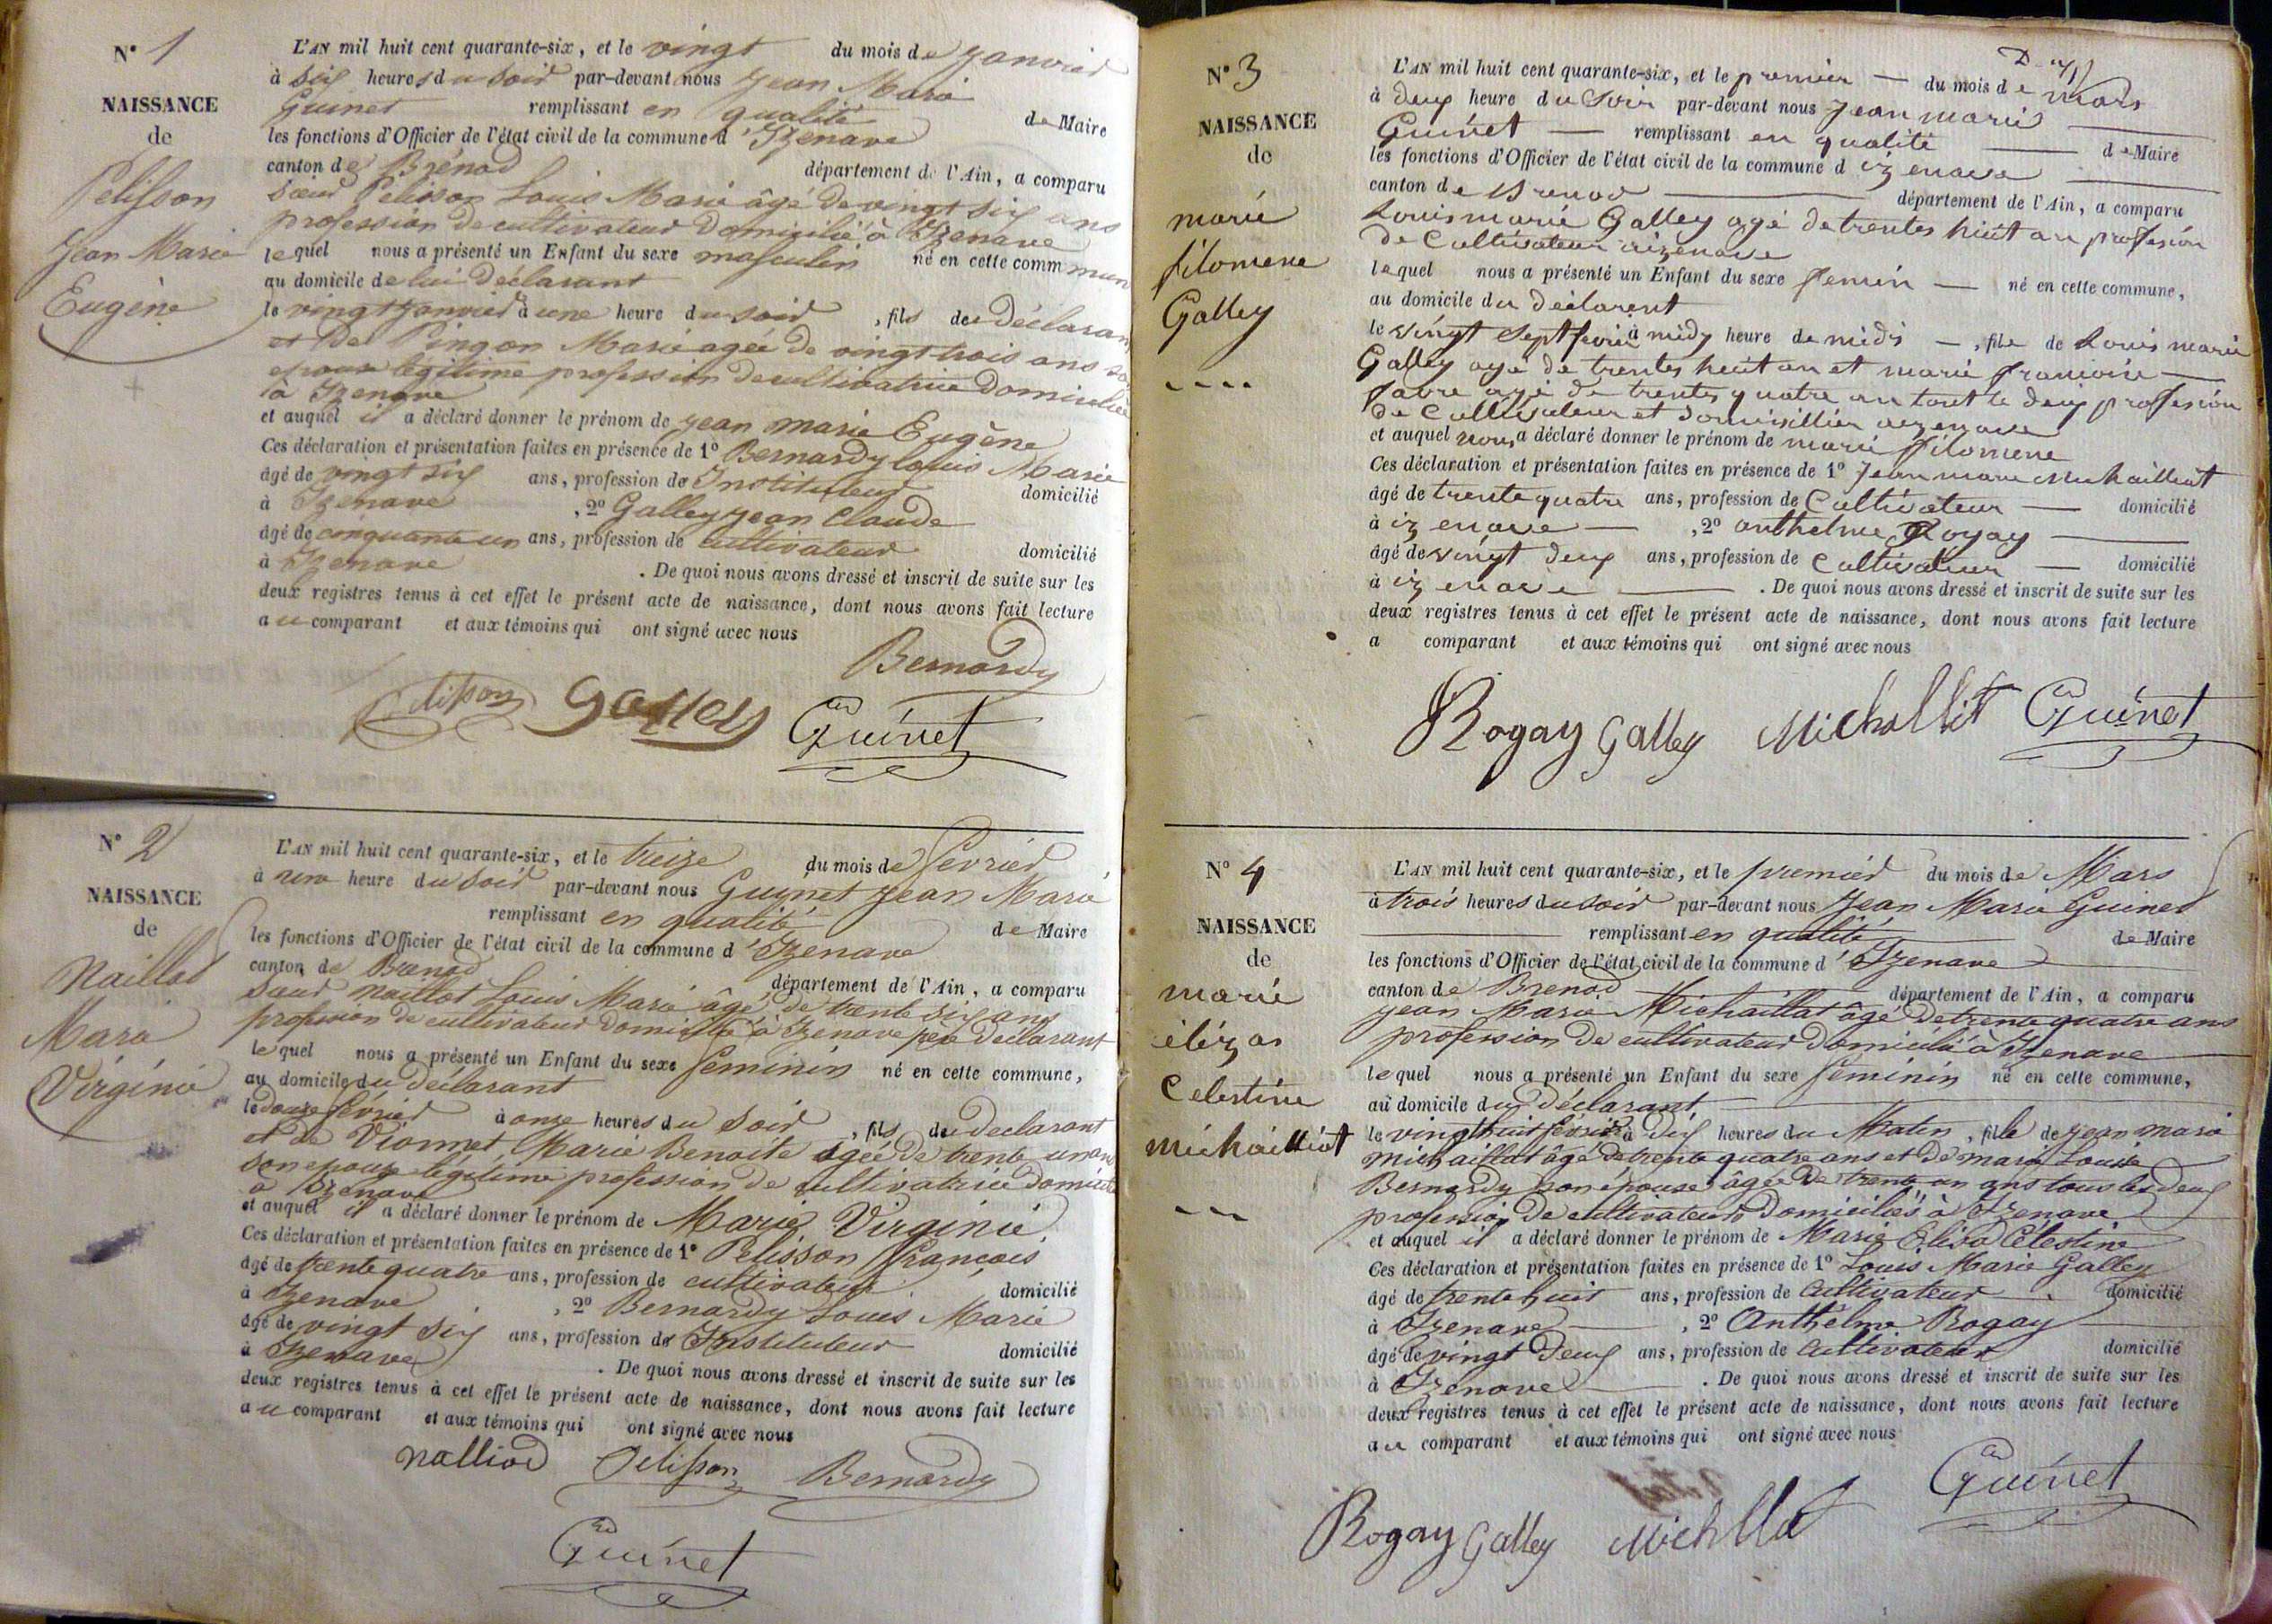 N° 1
NAISSANCE
de
Pelisson
Jean Marie
Eugène
L'AN mil huit cent quarante-six, et le vingt du mois de janvier
à six heures du soir par-devant nous Jean Marie
Guinet remplissant en qualité de Maire
les fonctions d'Officier de l'état civil de la commune d'Izenave
canton de Brénod département de l'Ain, a comparu
sieur Pelisson Louis Marie âgé de vingt six ans
profession de cultivateur domicilié à Izenave
lequel nous a présenté un Enfant du sexe masculin né en cette commune
au domicile de lui déclarant
le vingt janvier à une heure du soir, fils de déclarant
et de Pingon Marie agée de vingt trois ans son
epouse légitime profession de cultivatrice domiciliée
à Izenave
et auquel il a déclaré donner le prénom de jean marie Eugène
Ces déclaration et présentation faites en présence de 1° Bernardy louis Marie
âgé de vingt six ans, profession de Instituteur domicilié
à Izenave, 2° Galley jean Claude
âgé de cinquante un ans, profession de cultivateur domicilié
à Izenave. De quoi nous avons dressé et inscrit de suite sur les
deux registres tenus à cet effet le présent acte de naissance, dont nous avons fait lecture
au comparant et aux témoins qui ont signé avec nous
Bernardy
Pelisson Galley Guinet
N° 2
NAISSANCE
de
Naillod
Marie
Virginie
L'AN mil huit cent quarante-six, et le treize du mois de février
à une heure du soir par-devant nous Guynet Jean Marie
remplissant en qualité de Maire
les fonctions d'Officier de l'état civil de la commune d'Izenave
canton de Brenod département de l'Ain, a comparu
sieur Naillot Louis Marie âgé de trente six ans
profession de cultivateur domicilié à Izenave père déclarant
lequel nous a présenté un Enfant du sexe féminin né en cette commune,
au domicile du déclarant
le douze février à onze heures du soir, fils du declarant
et de Vionnet Marie Benoite agée de trente un ans
son epouse légitime profession de cultivatrice domicilié
à Izenave
et auquel il a déclaré donner le prénom de Marie Virginie
Ces déclaration et présentation faites en présence de 1° Pelisson françois
âgé de trente quatre ans, profession de cultivateur domicilié
à Izenave, 2° Bernardy Louis Marie
âgé de vingt six ans, profession de Instituteur domicilié
à Izenave. De quoi nous avons dressé et inscrit de suite sur les
deux registres tenus à cet effet le présent acte de naissance, dont nous avons fait lecture
au comparant et aux témoins qui ont signé avec nous
nalliod Pelisson Bernardy
Guinet
N° 3
NAISSANCE
de
marie
filomene
Galley
L'AN mil huit cent quarante-six, et le premier du mois de mars
à deux heure du soir par-devant nous jean marie
Guinet remplissant en qualité de Maire
les fonctions d'Officier de l'état civil de la commune d izenave
canton de Brenod département de l'Ain, a comparu
Louis marie Galley agé de trentes huit an profesion
de Cultivateur aizenave
lequel nous a présenté un Enfant du sexe femin né en cette commune,
au domicile du déclarent
le vingt sept fevrié à midy heure de midi, file de Louis marie
Galley agé de trentes huit an et marie francoise
favre agé de trentes quatre an tout le deux profesion
de Cultivateur et domicillier aizenave
et auquel nous a déclaré donner le prénom de marie filomene
Ces déclaration et présentation faites en présence de 1° jean marie Michailliat
âgé de trente quatre ans, profession de Cultivateur domicilié
à izenave, 2° anthelme Rogay
âgé de vingt deux ans, profession de Cultivateur domicilié
à izenave. De quoi nous avons dressé et inscrit de suite sur les
deux registres tenus à cet effet le présent acte de naissance, dont nous avons fait lecture
a comparant et aux témoins qui ont signé avec nous
Rogay Galley Michallit Guinet
N° 4
NAISSANCE
de
marie
élézas
Celestine
michailliot
L'AN mil huit cent quarante-six, et le premier du mois de Mars
à trois heures du soir par-devant nous Jean Marie Guinet
remplissant en qualité de Maire
les fonctions d'Officier de l'état civil de la commune d'Izenave
canton de Brenod département de l'Ain, a comparu
jean Marie Michaillat âgé de trente quatre ans
profession de cultivateur domicilié à Izenave
lequel nous a présenté un Enfant du sexe féminin né en cette commune,
au domicile du déclarant
le vingt huit février à dix heures du Matin, fille de jean marie
michaillat âgé de trente quatre ans et de marie Louise
Bernardy son épouse âgée de trente un ans tous les deux
profession de cultivateurs domiciliés à Izenave
et auquel il a déclaré donner le prénom de Marie Elisa Célestine
Ces déclaration et présentation faites en présence de 1° Louis Marie Galley
âgé de trente huit ans, profession de Cultivateur domicilié
à Izenave, 2° Anthelme Rogay
âgé de vingt deux ans, profession de Cultivateur domicilié
à Izenave. De quoi nous avons dressé et inscrit de suite sur les
deux registres tenus à cet effet le présent acte de naissance, dont nous avons fait lecture
au comparant et aux témoins qui ont signé avec nous
Guinet
Rogay Galley